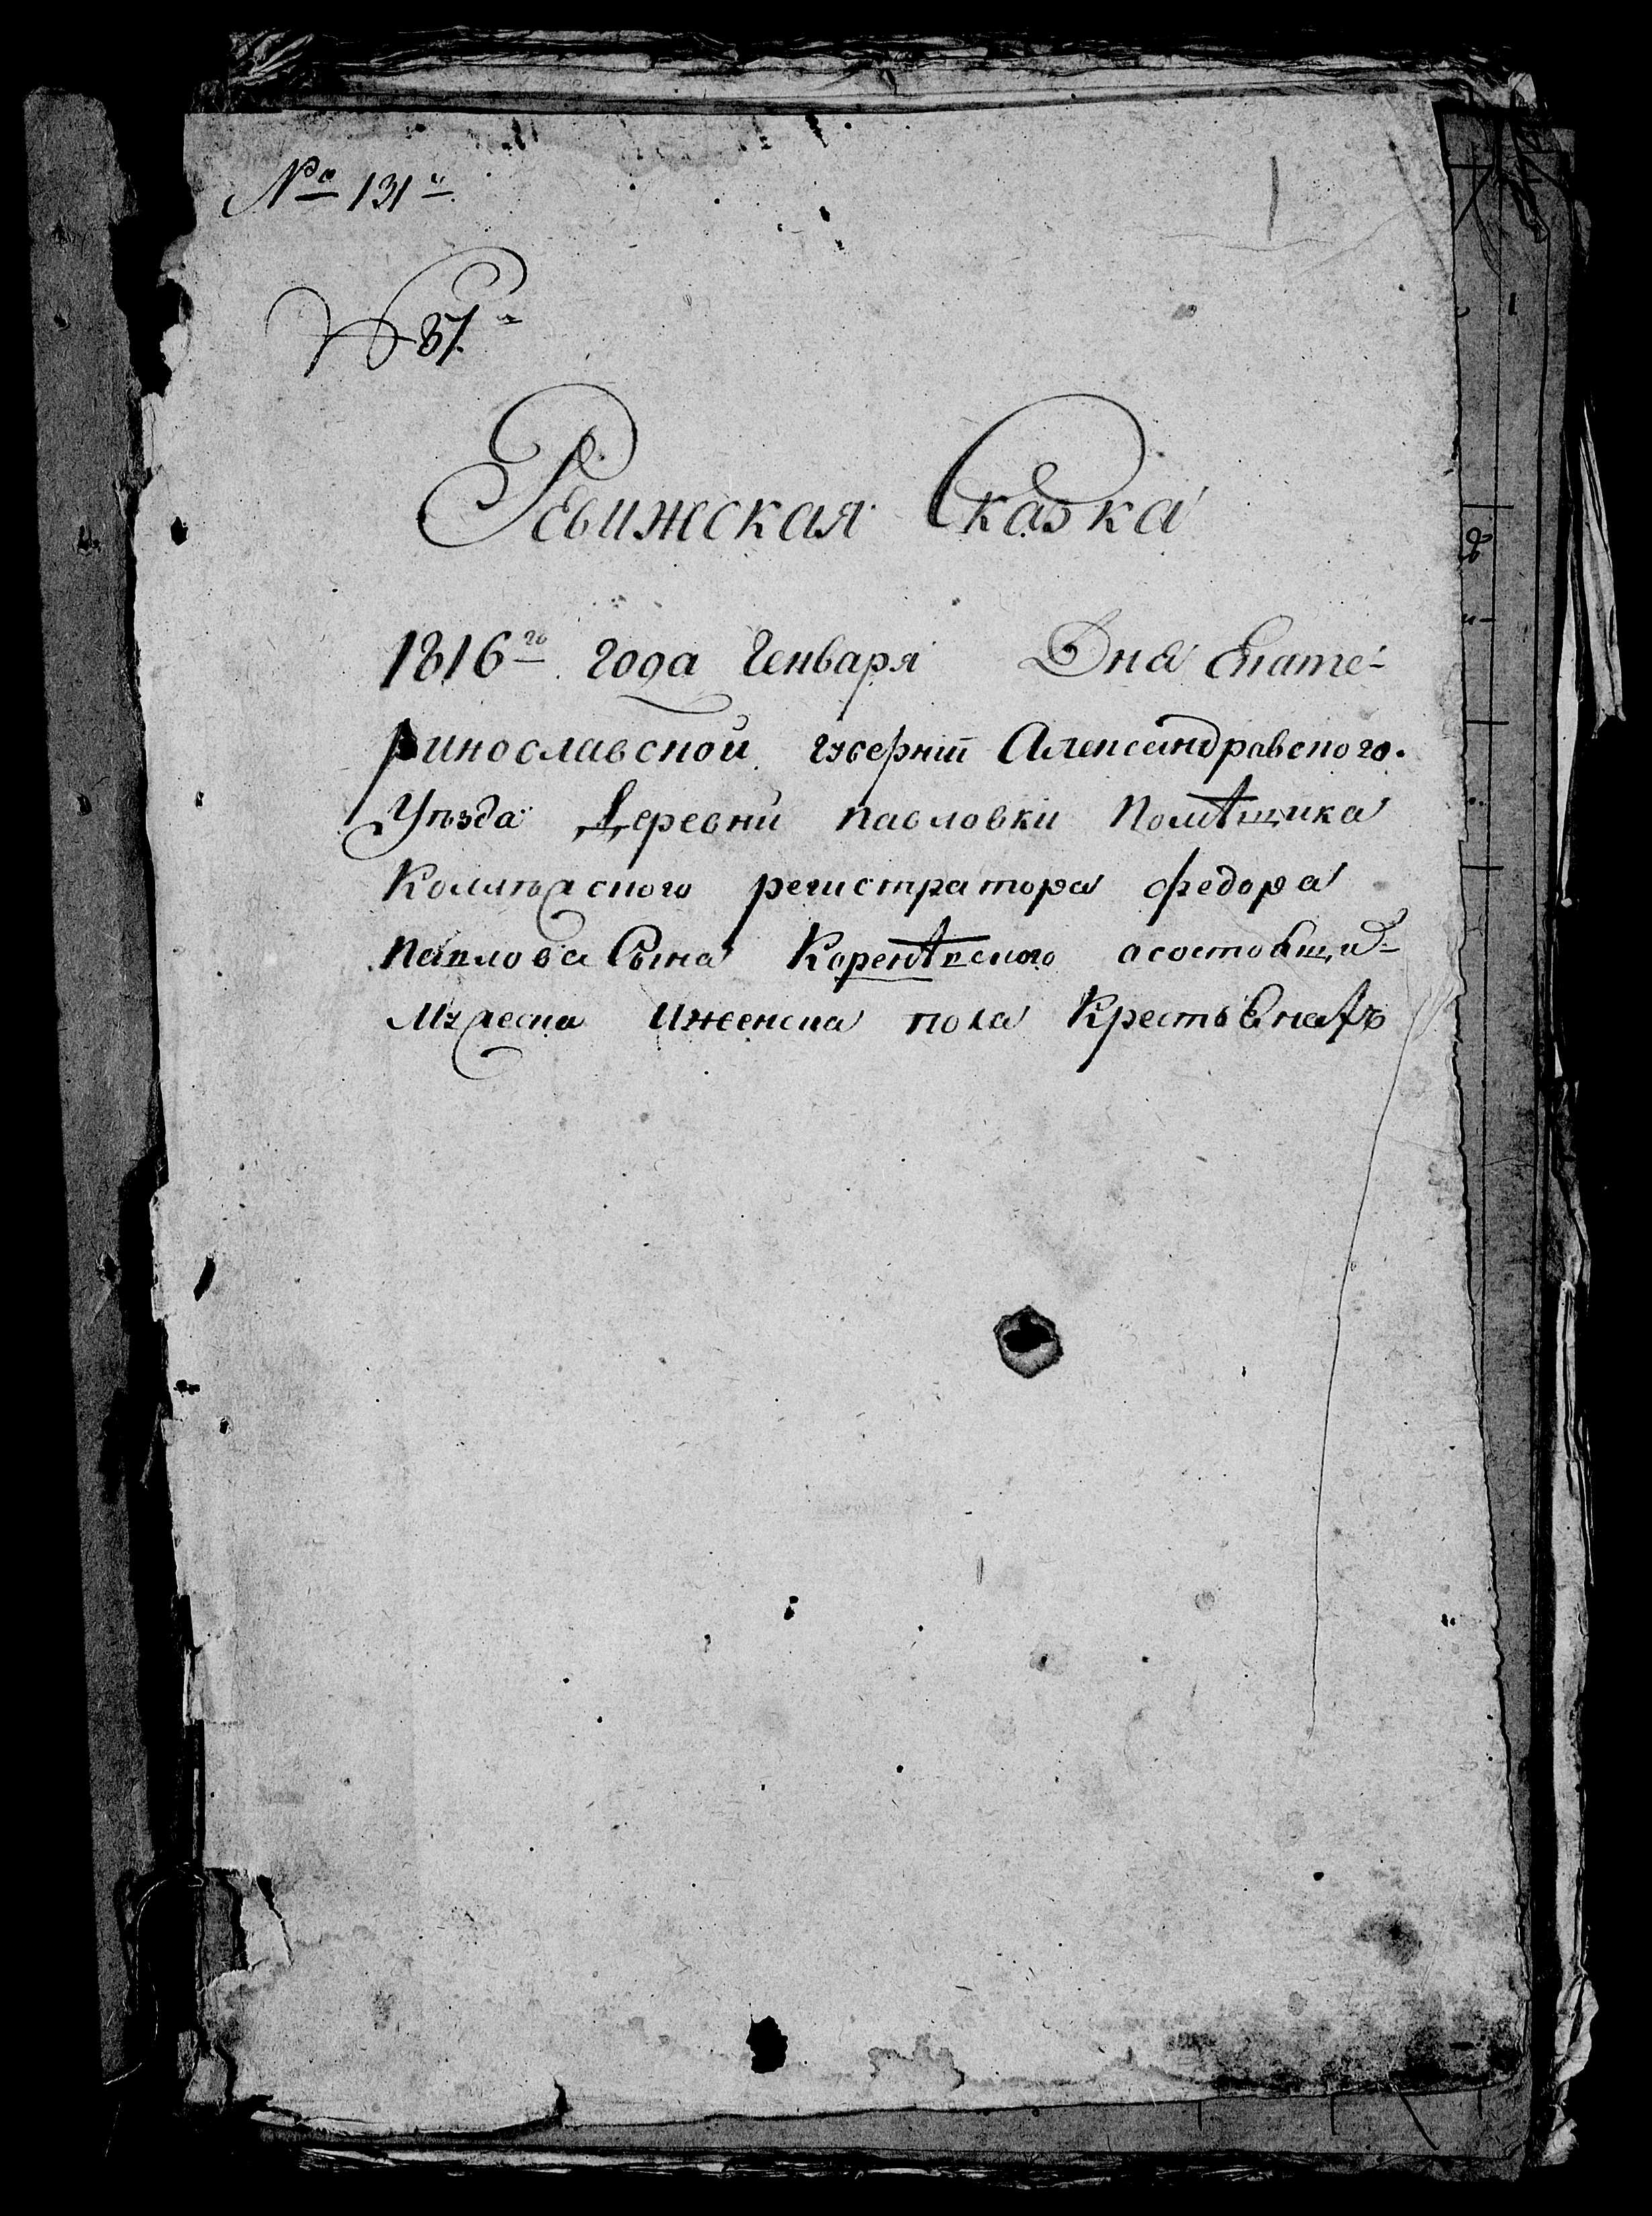 № 131й
№ 87й
Ревижская Сказка
1816го года Генваря Дня Екате-
ринославской губерніи Александравского
Уѣзда Деревни павловки Помѣщика
Колѣжского регистратора федора
павлова Сына асостоящи-
мужеска иженска пола Крестьянахъ